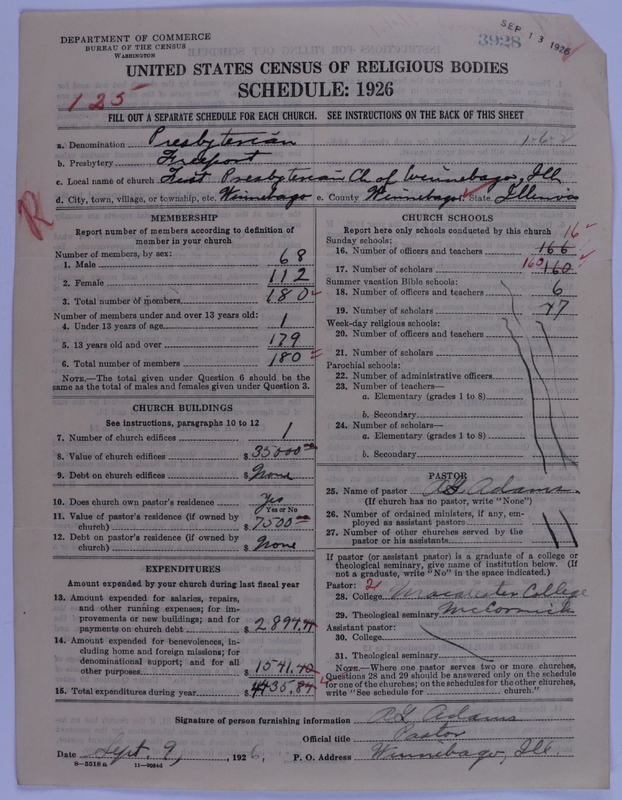 DEPARTMENT OF COMMERCE
BUREAU OF THE CENSUS
WASHINGTON
3928
SEP 13 1926
UNITED STATES CENSUS OF RELIGIOUS BODIES
SCHEDULE: 1926
125
FILL OUT A SEPARATE SCHEDULE FOR EACH CHURCH. SEE INSTRUCTIONS ON THE BACK OF THIS SHEET
a. Denomination Presbyterian
b. Presbytery Freeport
c. Local name of church First Presbyterian Ch. of Winnebago, Ill
d. City, town, village, or township, etc. Winnebago e. County Winnebago f. State Illinois
R
MEMBERSHIP
Report number of members according to definition of
member in your church
Number of members, by sex:
1. Male 68
2. Female 112
3. Total number of members 180
Number of members under and over 13 years old:
4. Under 13 years of age 1
5. 13 years old and over 179
6. Total number of members 180
NOTE.—The total given under Question 6 should be the
same as the total of males and females given under Question 3.
CHURCH BUILDINGS
See instructions, paragraphs 10 to 12
7. Number of church edifices 1
8. Value of church edifices $ 35000.00
9. Debt on church edifices $ None
10. Does church own pastor's residence Yes
Yes or No
11. Value of pastor's residence (if owned by
church) $ 7500.00
12. Debt on pastor's residence (if owned by
church) $ None
EXPENDITURES
Amount expended by your church during last fiscal year
13. Amount expended for salaries, repairs,
and other running expenses; for im-
provements or new buildings; and for
payments on church debt $ 2894.
14. Amount expended for benevolences, in-
cluding home and foreign missions; for
denominational support; and for all
other purposes $ 1541.40
15. Total expenditures during year $ 4435.84
CHURCH SCHOOLS
Report here only schools conducted by this church
Sunday schools: 16
16. Number of officers and teachers 166
17. Number of scholars 160 160
Summer vacation Bible schools:
18. Number of officers and teachers 6
19. Number of scholars 27
Week-day religious schools:
20. Number of officers and teachers
21. Number of scholars
Parochial schools:
22. Number of administrative officers
23. Number of teachers—
a. Elementary (grades 1 to 8)
b. Secondary
24. Number of scholars—
a. Elementary (grades 1 to 8)
b. Secondary
PASTOR
25. Name of pastor Adams
(If church has no pastor, write "None")
26. Number of ordained ministers, if any, em-
ployed as assistant pastors
27. Number of other churches served by the
pastor or his assistants
If pastor (or assistant pastor) is a graduate of a college or
theological seminary, give name of institution below. (If
not a graduate, write "No" in the space indicated.)
Pastor: 21
28. College Macalester College
29. Theological seminary McCormick
Assistant pastor:
30. College
31. Theological seminary
NOTE.—Where one pastor serves two or more churches,
Questions 28 and 29 should be answered only on the schedule
for one of the churches; on the schedules for the other churches,
write "See schedule for church."
Signature of person furnishing information Adams
Official title Pastor
Date Sept. 9, 1926, P. O. Address Winnebago, Ill.
8-5518a